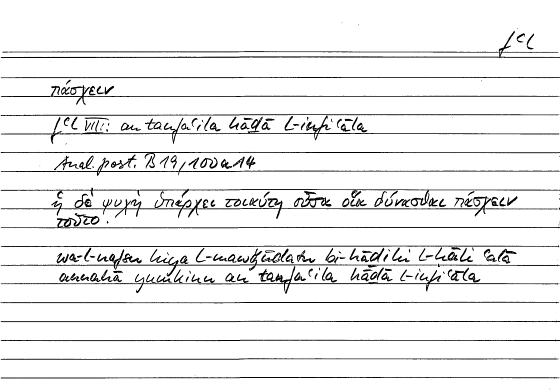 fʿl
πάσχειν
fʿl VII: an tanfaʿila hāḏā l-infiʿāla
Anal. post. B 19, 100a14
ἡ δὲ ψυχὴ ὑπάρχει τοιαύτη οὖσα οἵα δύνασθαι πάσχειν
τοῦτο.
wa-l-nafsu hiya l-mawǧūdatu bi-hāḏihi l-ḥāli ʿalā
annahā yumkinu an tanfaʿila hāḏā l-infiʿāla